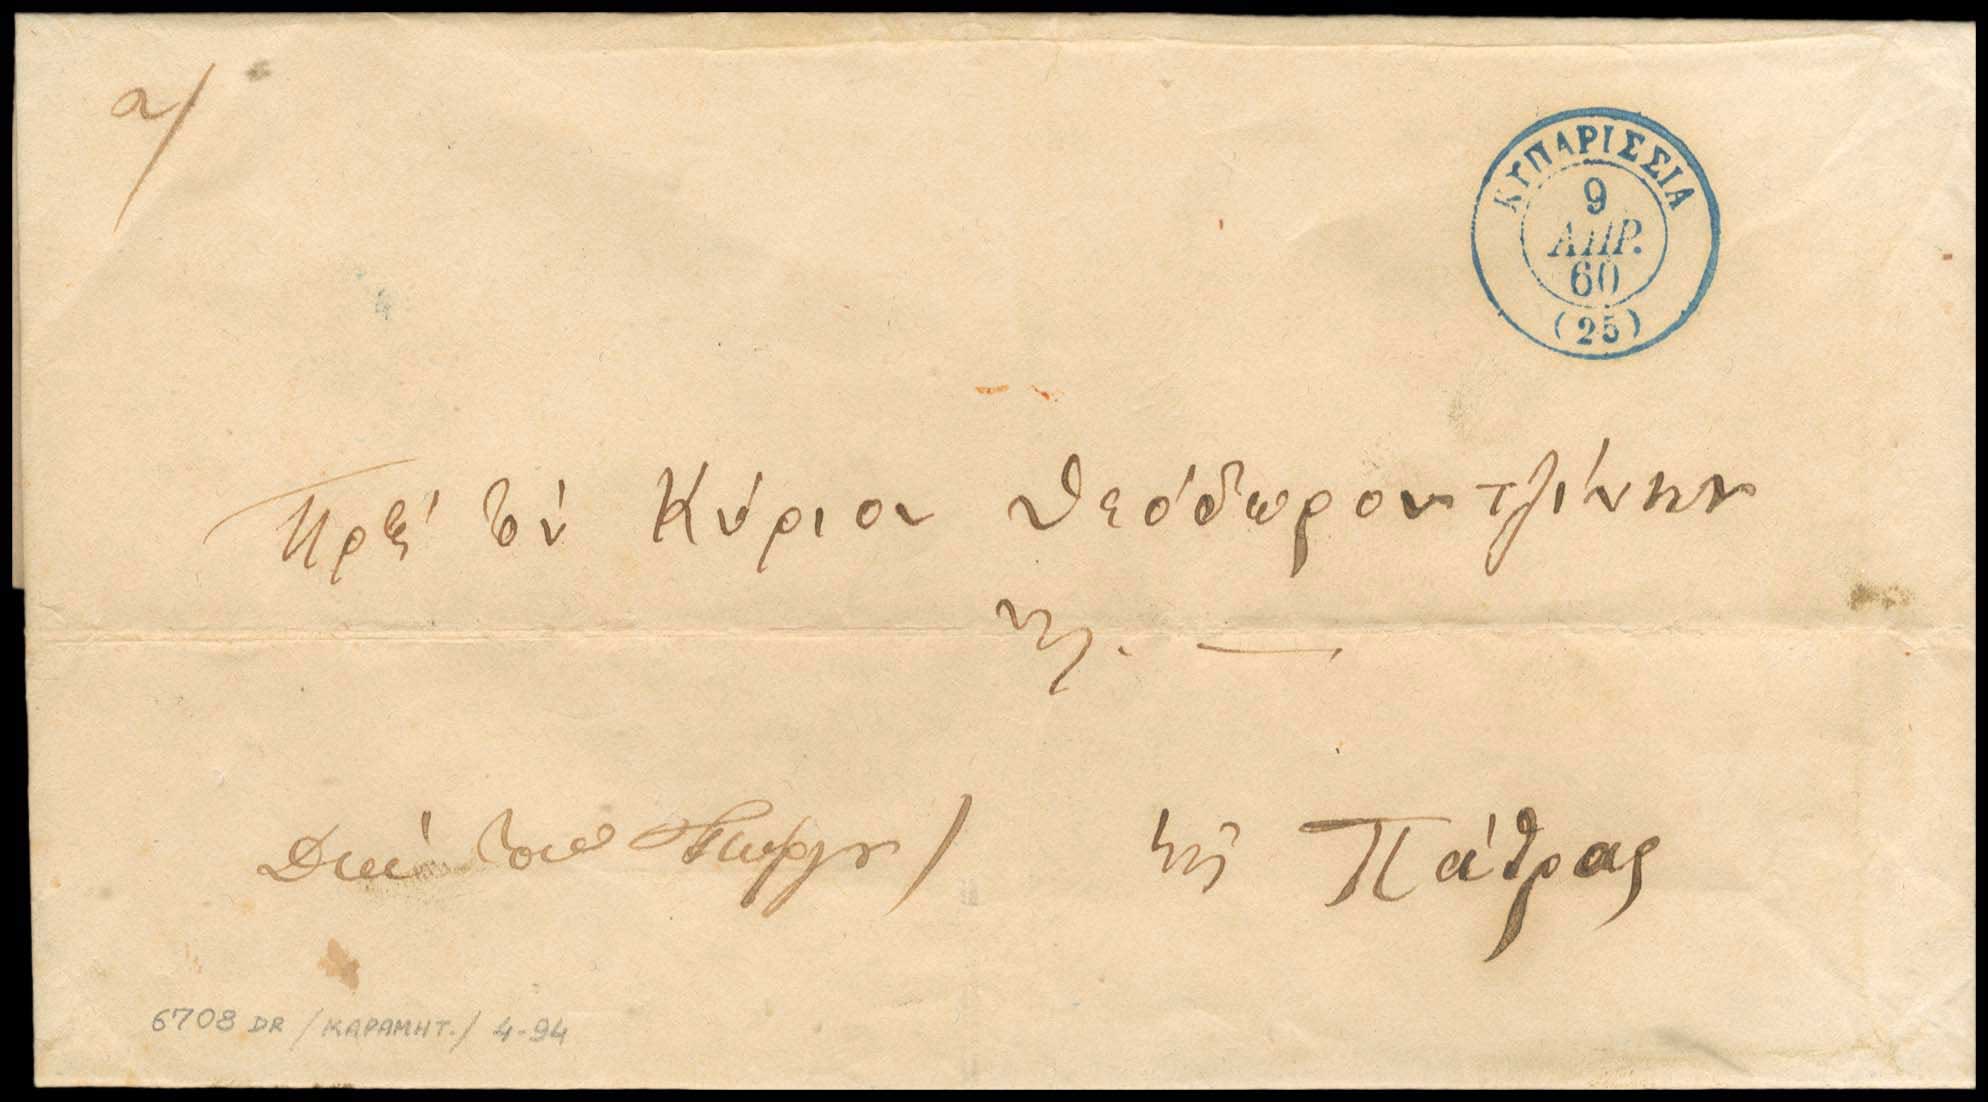 α/
ΚΥΠΑΡΙΣΣΙΑ
9
ΑΠΡ.
60
(25)
Πρὸς τὸν Κύριον Θεόδωρον
Διὰ τοῦ
εἰς Πάτρας
6708 DR / ΚΑΡΑΜΗΤ. / 4-94